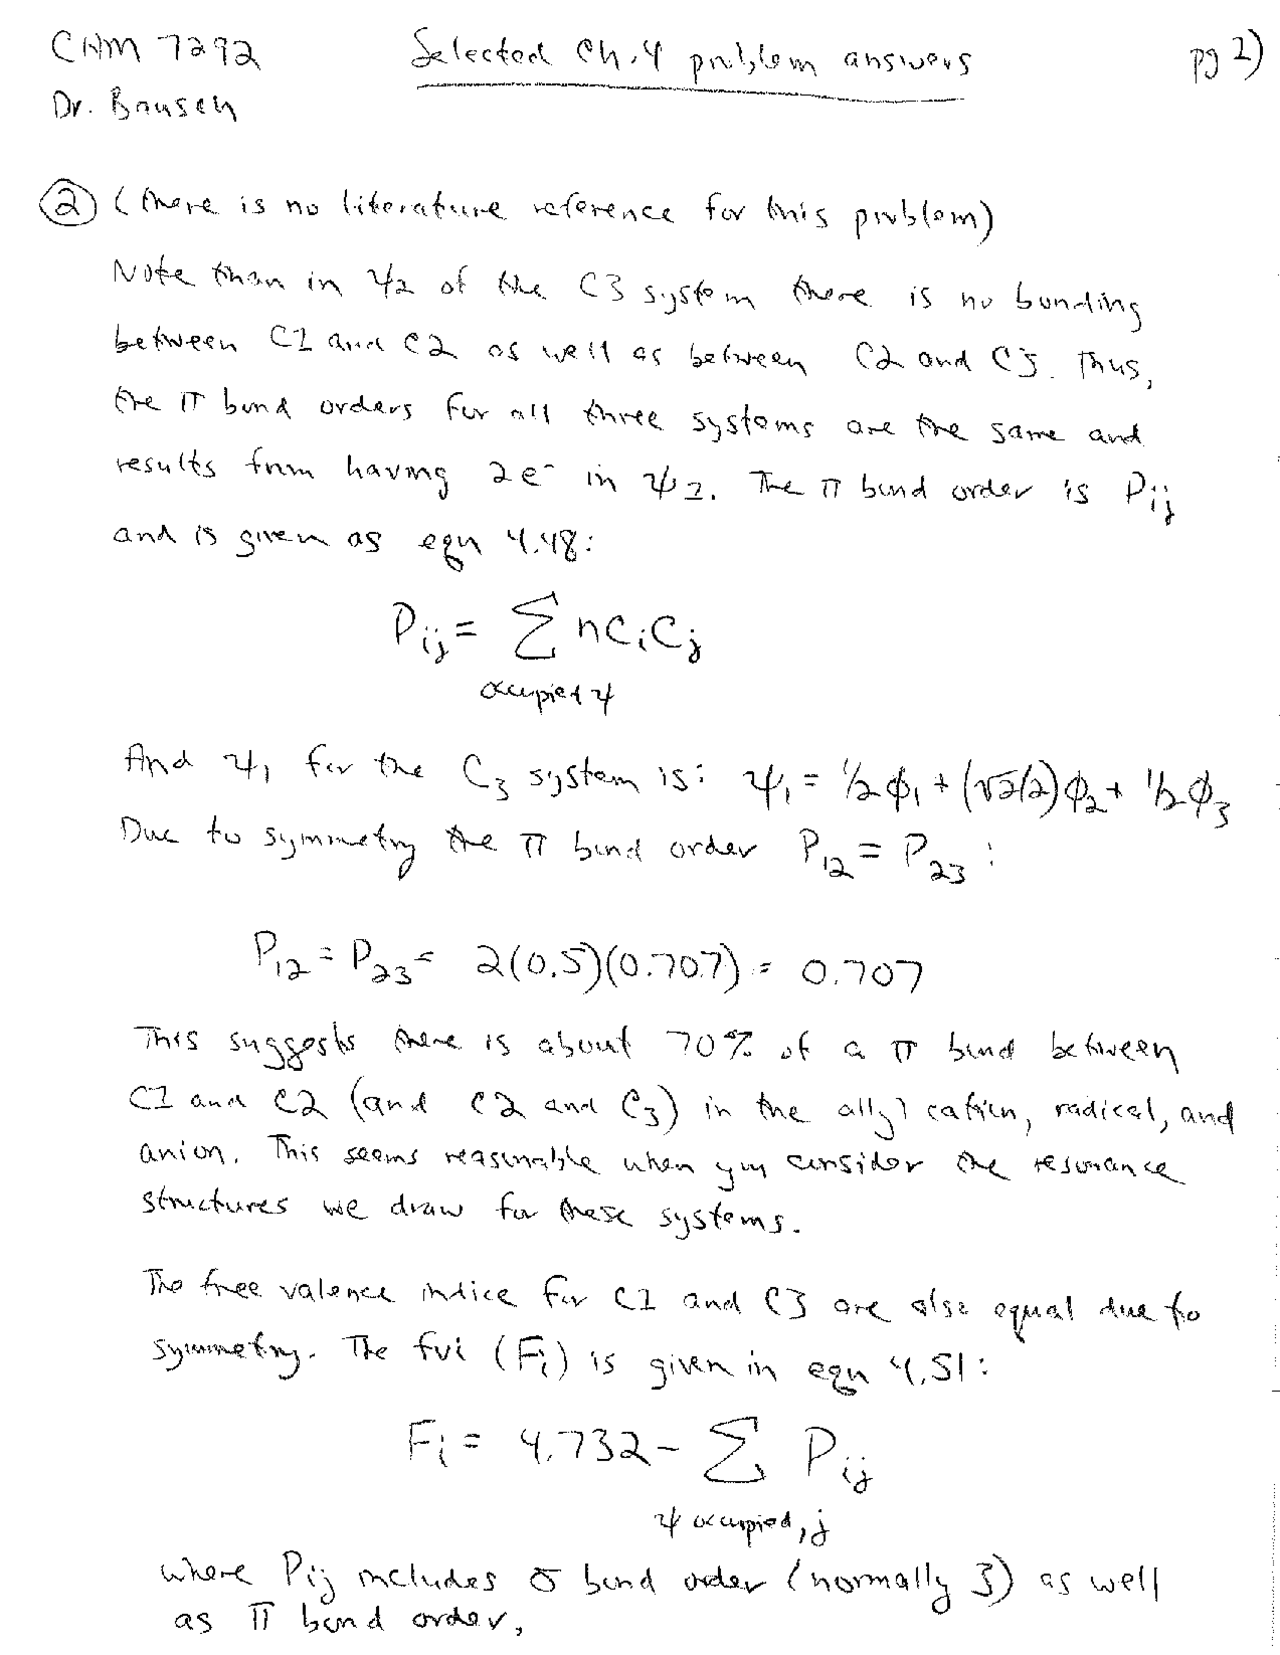 CHM 7292 Selected Ch. 4 problem answers pg 2)
Dr. Bausch
② (there is no literature reference for this problem)
Note than in ψ2 of the C3 system there is no bonding
between C1 and C2 as well as between C2 and C3. Thus,
the π bond orders for all three systems are the same and
results from having 2e⁻ in ψ1. The π bond order is Pij
and is given as eqn 4.48:
Pij = Σ nCiCj
occupied ψ
And ψ1 for the C3 system is: ψ1 = 1/2 φ1 + (√2/2) φ2 + 1/2 φ3
Due to symmetry the π bond order P12 = P23 :
P12 = P23 = 2(0.5)(0.707) = 0.707
This suggests there is about 70% of a π bond between
C1 and C2 (and C2 and C3) in the allyl cation, radical, and
anion. This seems reasonable when you consider the resonance
structures we draw for these systems.
The free valence indice for C1 and C3 are also equal due to
symmetry. The fvi (Fi) is given in eqn 4.51:
Fi = 4.732 - Σ Pij
ψ occupied, j
where Pij includes σ bond order (normally 3) as well
as π bond order,